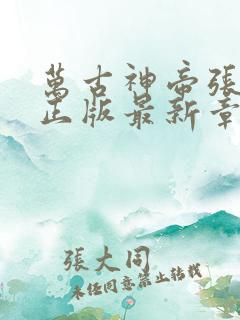 萬古神帝張
正版最新章
張大同
未经同意禁止转载